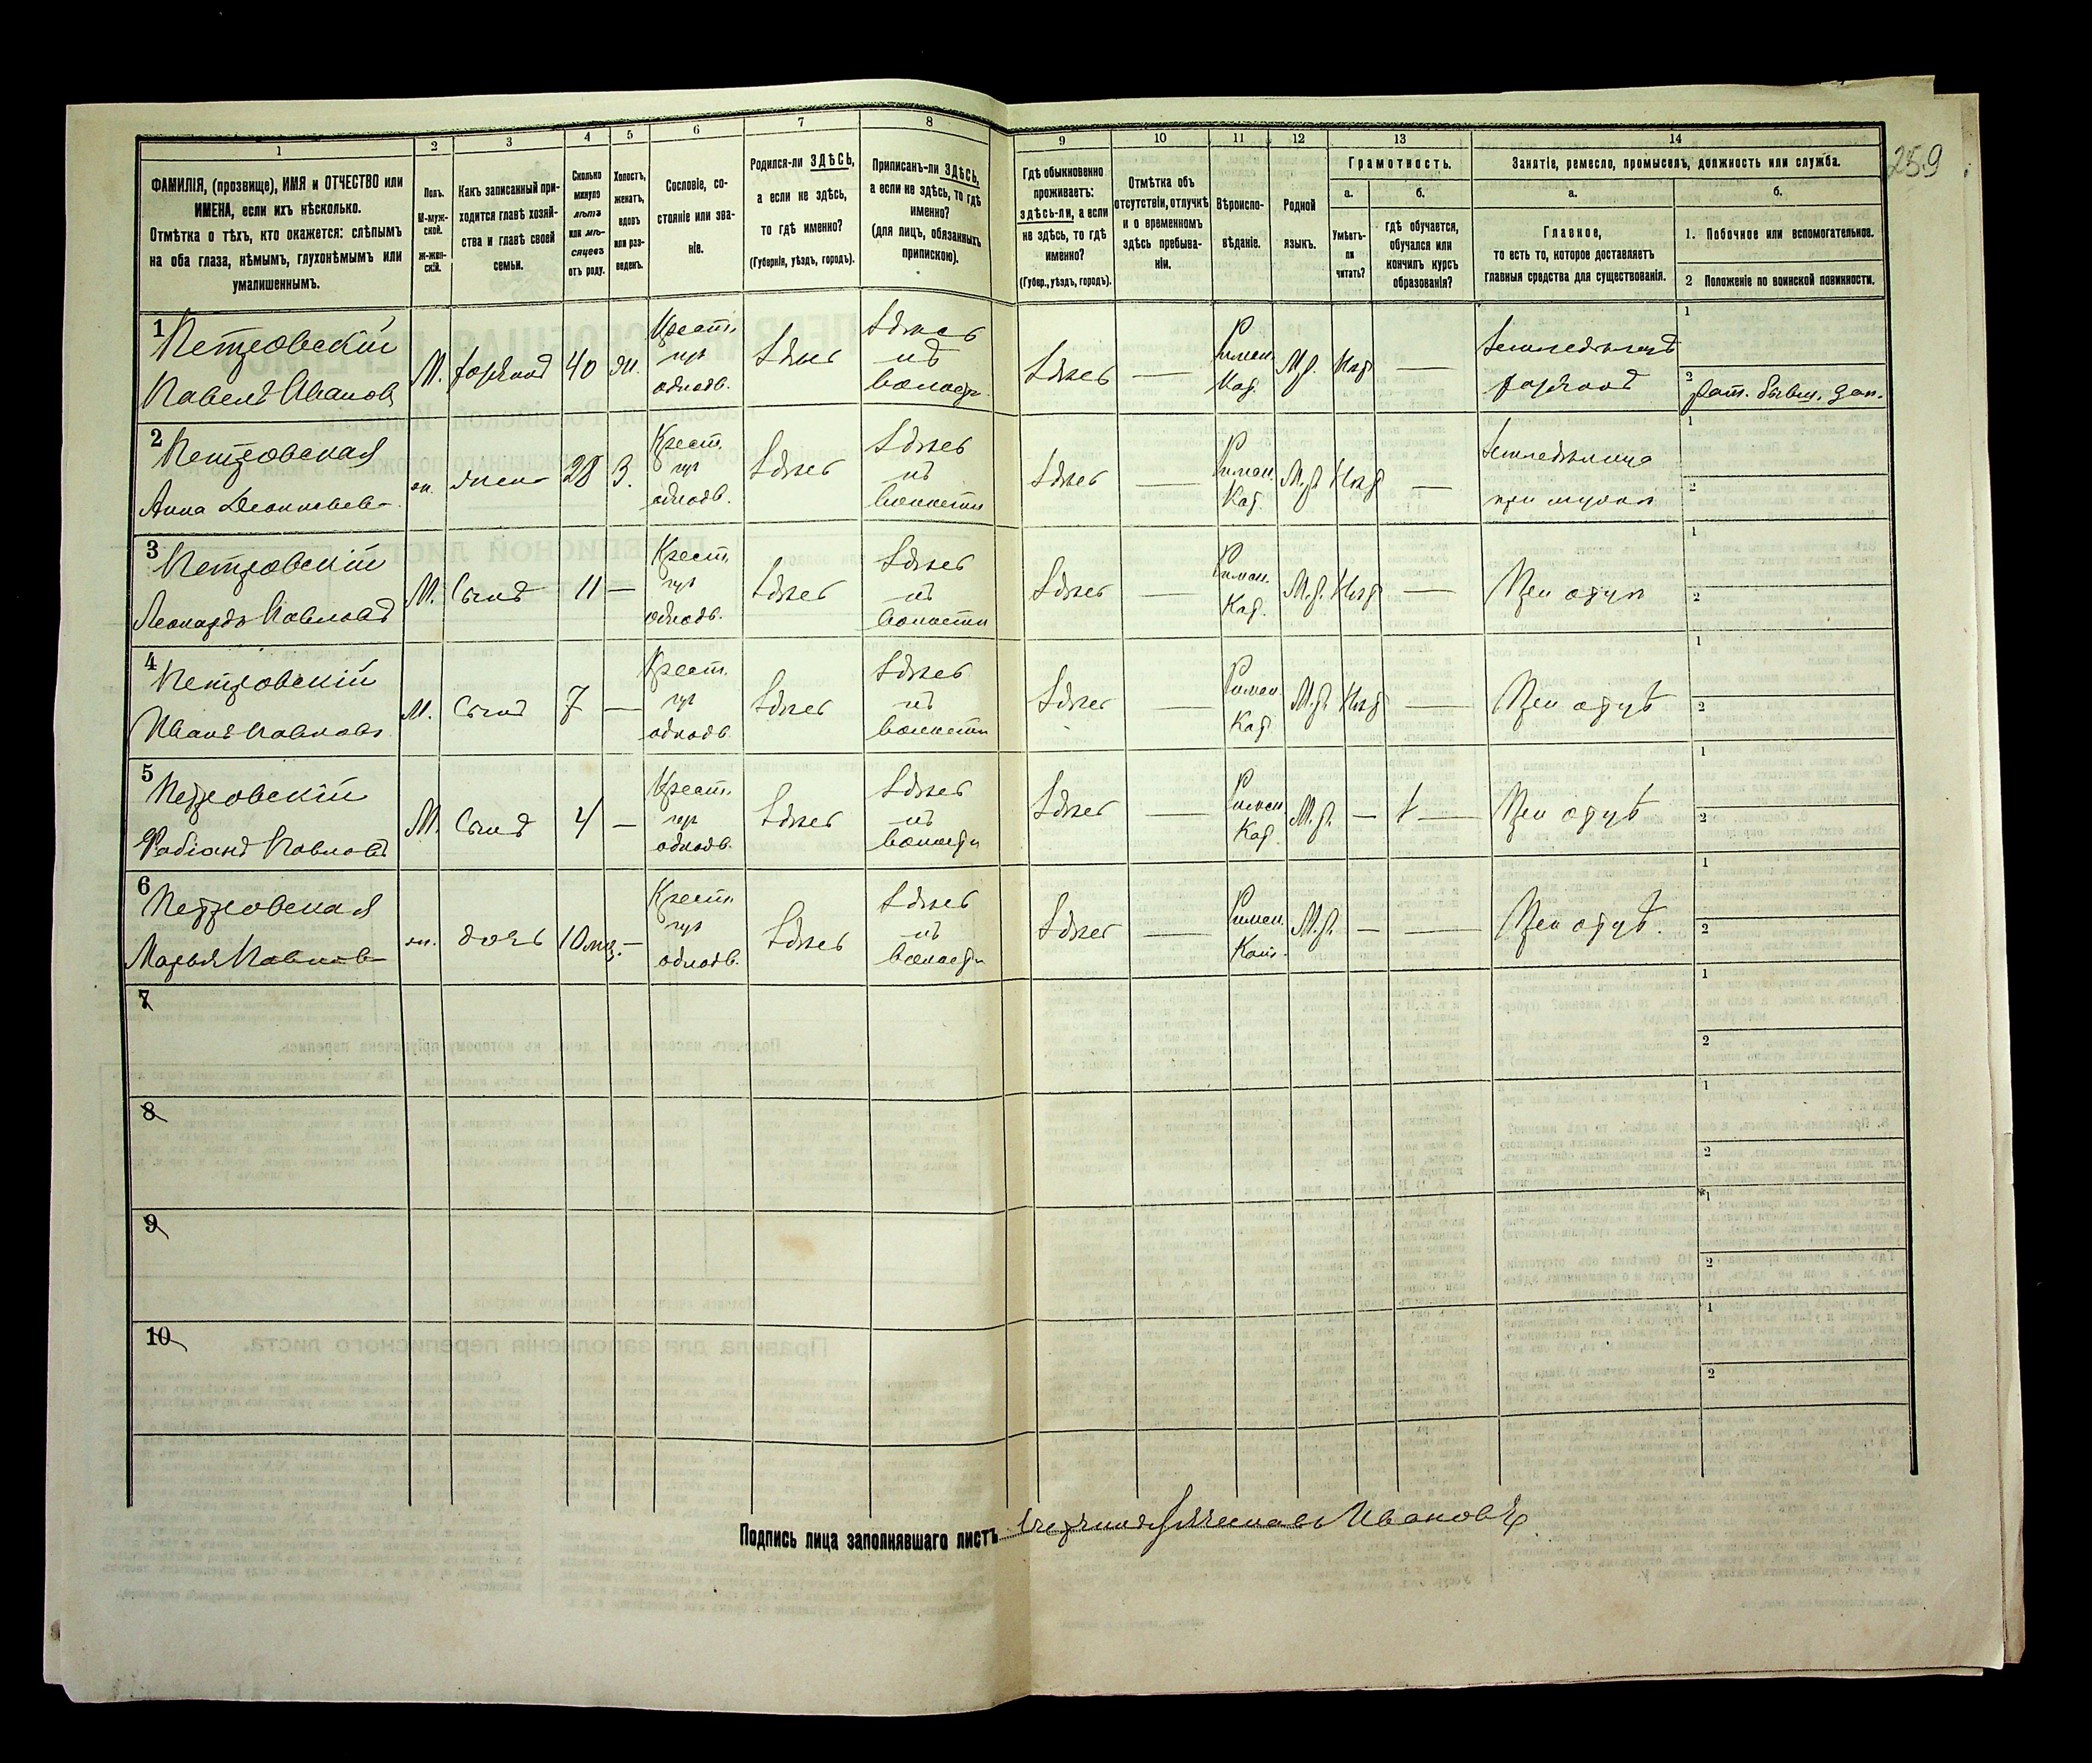 259
1
2
3
4
5
6
7
8
9
10
11
12
13
14
ФАМИЛІЯ, (прозвище), ИМЯ и ОТЧЕСТВО или
ИМЕНА, если ихъ нѣсколько.
Отмѣтка о тѣхъ, кто окажется: слѣпымъ
на оба глаза, нѣмымъ, глухонѣмымъ или
умалишеннымъ.
Полъ.
М-муж-
ской.
Ж-жен-
скій.
Какъ записанный при-
ходится главѣ хозяй-
ства и главѣ своей
семьи.
Сколько
минуло
лѣтъ
или мѣ-
сяцевъ
отъ роду.
Холостъ,
женатъ,
вдовъ
или раз-
веденъ.
Сословіе, со-
стояніе или зва-
ніе.
Родился-ли ЗДѢСЬ,
а если не здѣсь,
то гдѣ именно?
(Губернія, уѣздъ, городъ).
Приписанъ-ли ЗДѢСЬ,
а если не здѣсь, то гдѣ
именно?
(для лицъ, обязанныхъ
припискою).
Гдѣ обыкновенно
проживаетъ:
здѣсь-ли, а если
не здѣсь, то гдѣ
именно?
(Губер., уѣздъ, городъ).
Отмѣтка объ
отсутствіи, отлучкѣ
и о временномъ
здѣсь пребыва-
ніи.
Вѣроиспо-
вѣданіе.
Родной
языкъ.
Грамотность.
а.
Умѣетъ-
ли
читать?
б.
гдѣ обучается,
обучался или
кончилъ курсъ
образованія?
Занятіе, ремесло, промыселъ, должность или служба.
а.
Главное,
то есть то, которое доставляетъ
главныя средства для существованія.
б.
1. Побочное или вспомогательное.
2 Положеніе по воинской повинности.
1
Петровскій
Павелъ Иванов
М.
40
ж.
Крест.
однодв.
Здѣсь
Здѣсь
въ
волости
Здѣсь
—
Римск.
Кат.
Нѣт
—
Земледѣлецъ
1
2
бывш.
2
Петровская
Анна
ж.
жена
28
З.
Крест.
однодв.
Здѣсь
Здѣсь
въ
волости
Здѣсь
—
Римск.
Кат.
Нѣт
—
при мужѣ
1
2
3
Петровскій
Леонардъ Павловъ
М.
Сынъ
11
—
Крест.
однодв.
Здѣсь
Здѣсь
въ
волости
Здѣсь
—
Римск.
Кат.
Нѣт
—
При отцѣ
1
2
4
Петровскій
Иванъ Павловъ
М.
Сынъ
7
—
Крест.
однодв.
Здѣсь
Здѣсь
въ
волости
Здѣсь
—
Римск.
Кат.
Нѣт
—
При отцѣ
1
2
5
Петровскій
Фабіанъ Павловъ
М.
Сынъ
4
—
Крест.
однодв.
Здѣсь
Здѣсь
въ
волости
Здѣсь
—
Римск.
Кат.
—
При отцѣ
1
2
6
Петровская
Марья Павлов
ж.
дочь
10 мѣ.
—
Крест.
однодв.
Здѣсь
Здѣсь
въ
волости
Здѣсь
—
Римск.
Кат.
—
—
При отцѣ.
1
2
7
1
2
8
1
2
9
1
2
10
1
2
Подпись лица заполнявшаго листъ
Ивановъ